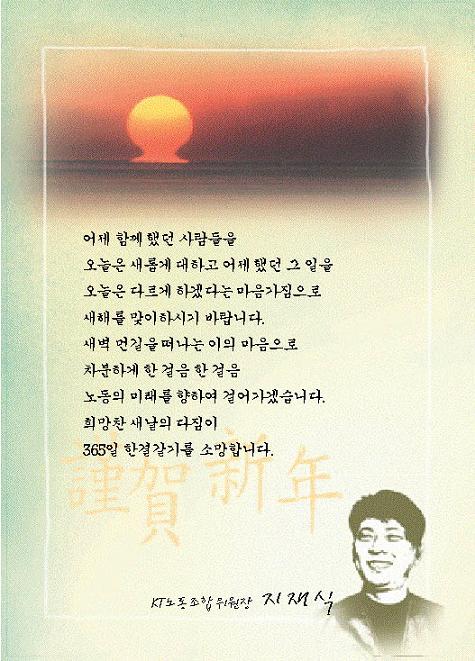 어제 함께 했던 사람들을
오늘은 새롭게 대하고 어제 했던 그 일을
오늘은 다르게 하겠다는 마음가짐으로
새해를 맞이하시기 바랍니다.
새벽 먼길을 떠나는 이의 마음으로
차분하게 한 걸음 한 걸음
노동의 미래를 향하여 걸어가겠습니다.
희망찬 새날의 다짐이
365일 한결같기를 소망합니다.
謹賀新年
KT노동조합 위원장 지재식